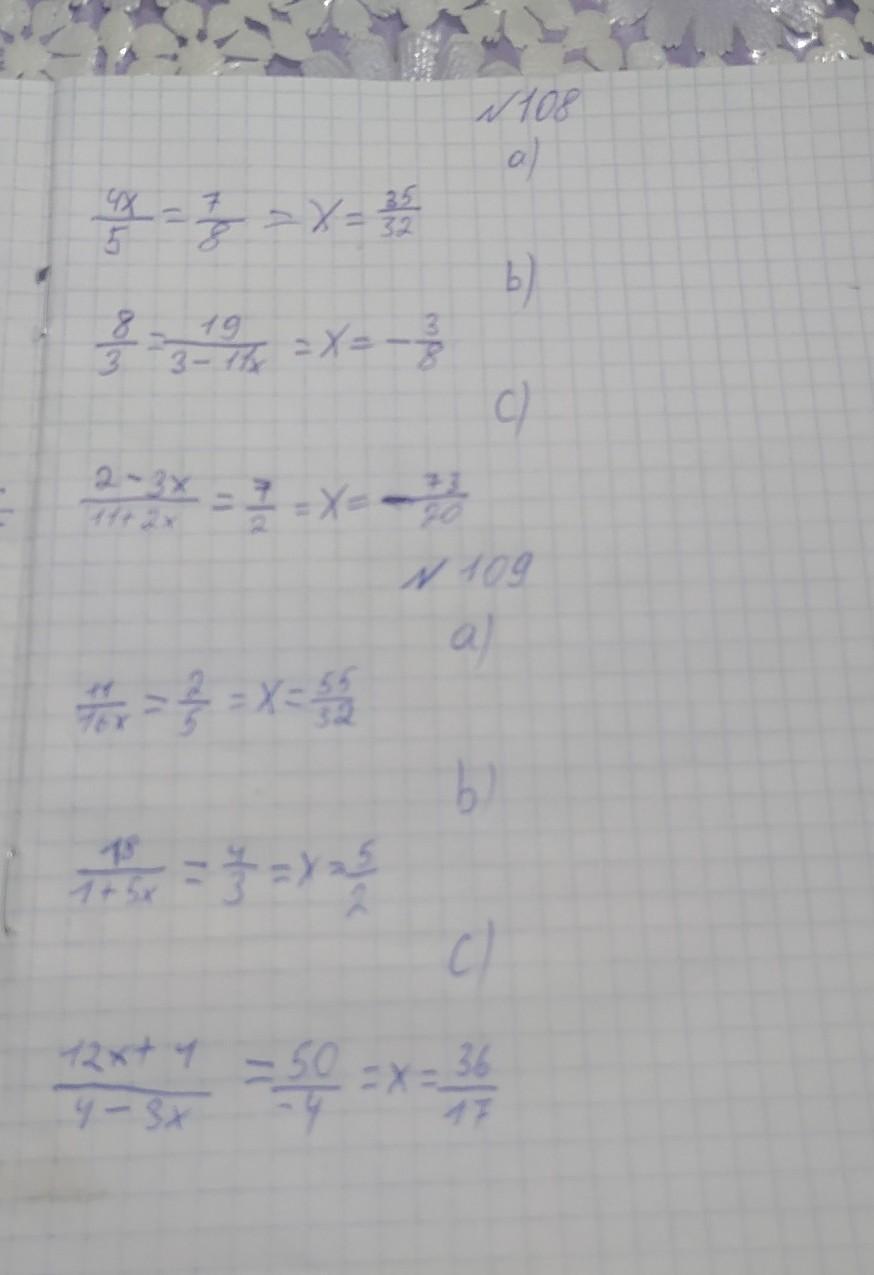 №108
a)
4x/5 = 7/8 = x = 35/32
b)
8/3 = 19/3-11x = x = -3/8
c)
2-3x/11+2x = 7/2 = x = -73/20
№109
a)
11/16x = 2/5 = x = 55/32
b)
18/1+5x = 4/3 = x = 5/2
c)
12x+1/4-3x = 50/-4 = x = 36/17